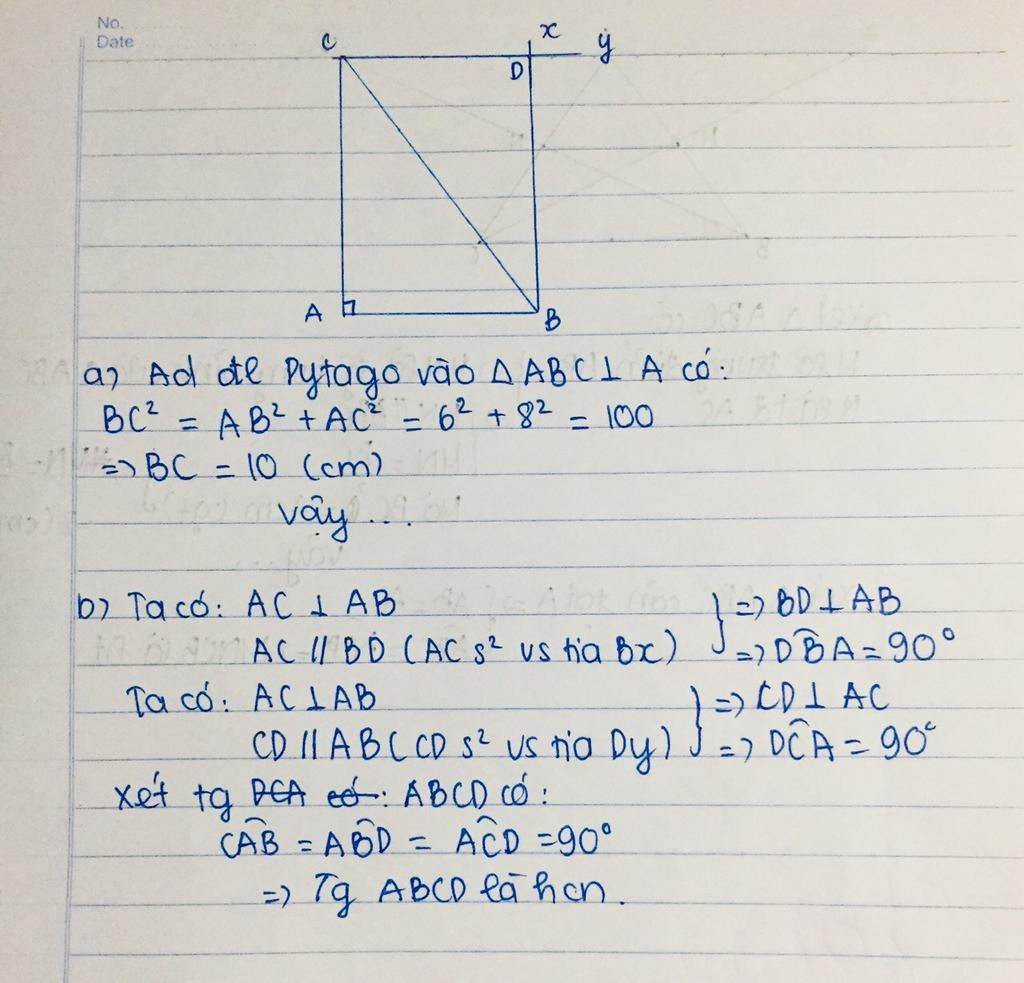 No.
Date
C
x
y
D
A
B
a) Ad đl Pytago vào △ABC⊥A có:
BC² = AB² + AC² = 6² + 8² = 100
=> BC = 10 (cm)
vậy ...
b) Ta có: AC ⊥ AB
AC // BD (AC s² vs tia Bx) } => BD ⊥ AB
=> DBA = 90°
Ta có: AC ⊥ AB
CD // AB (CD s² vs tia Dy) } => CD ⊥ AC
=> DCA = 90°
Xét tg DCA có: ABCD có:
CAB = ABD = ACD = 90°
=> Tg ABCD là hcn.